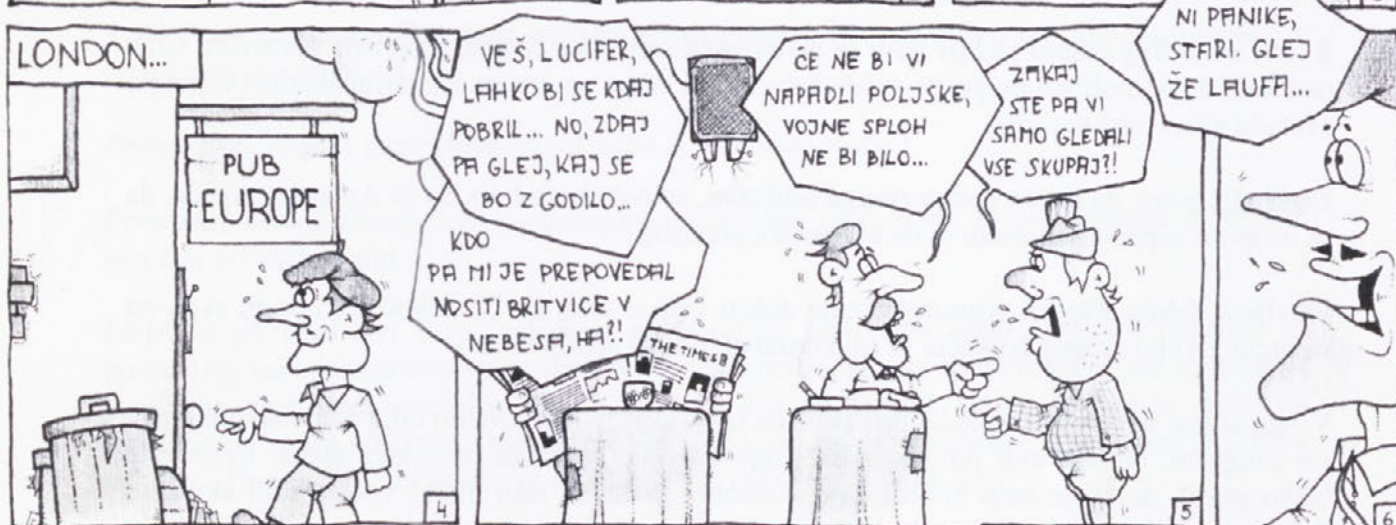 LONDON...
PUB
EUROPE
4
VEŠ, LUCIFER,
LAHKO BI SE KDAJ
POBRIL... NO, ZDAJ
PA GLEJ, KAJ SE
BO ZGODILO...
KDO
PA MI JE PREPOVEDAL
NOSITI BRITVICE V
NEBESA, HA?!
THE TIMES
ČE NE BI VI
NAPADLI POLJSKE,
VOJNE SPLOH
NE BI BILO...
ZAKAJ
STE PA VI
SAMO GLEDALI
VSE SKUPAJ?!
5
NI PANIKE,
STARI. GLEJ
ŽE LAUFA...
6